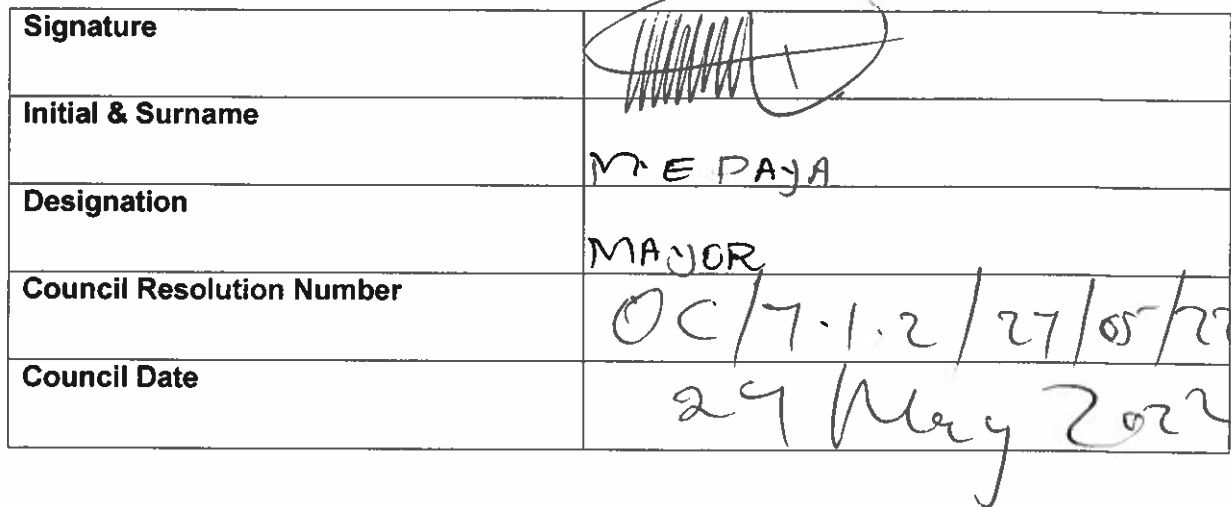 Signature
Initial & Surname
M.E PAYA
Designation
MAYOR
Council Resolution Number
OC/7.1.2/27/05/22
Council Date
27 May 2022